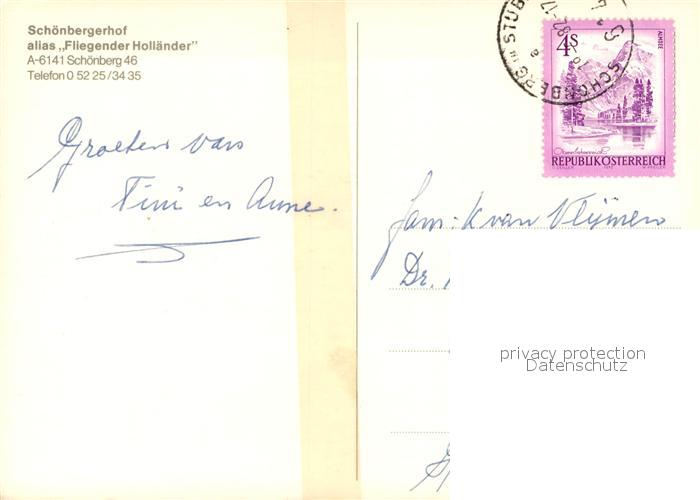 Schönbergerhof
alias „Fliegender Holländer"
A-6141 Schönberg 46
Telefon 0 52 25/34 35
Groeten van
Tini en Anne.
4S
ALMSEE
REPUBLIK ÖSTERREICH
SCHÖNBERG
Fam. K van Vlijmen
Dr.
privacy protection
Datenschutz